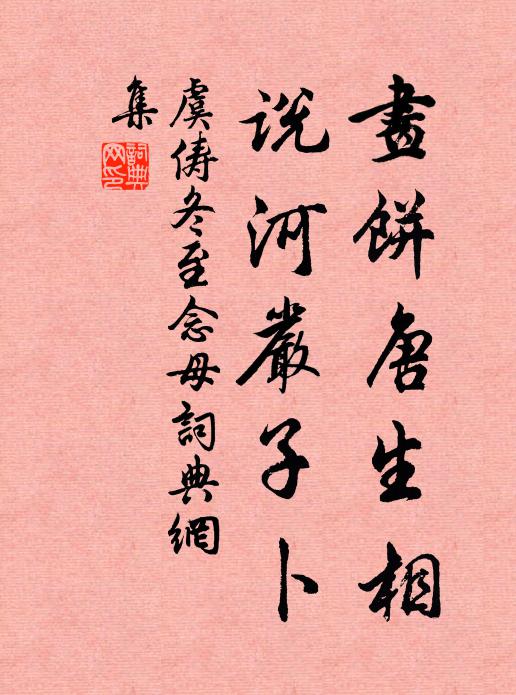 畫餅唐生相
説河嚴子卜
虞儔冬至念母詞典網
集
詞典
网印